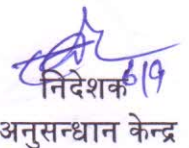 निदेशक 6/9
अनुसन्धान केन्द्र